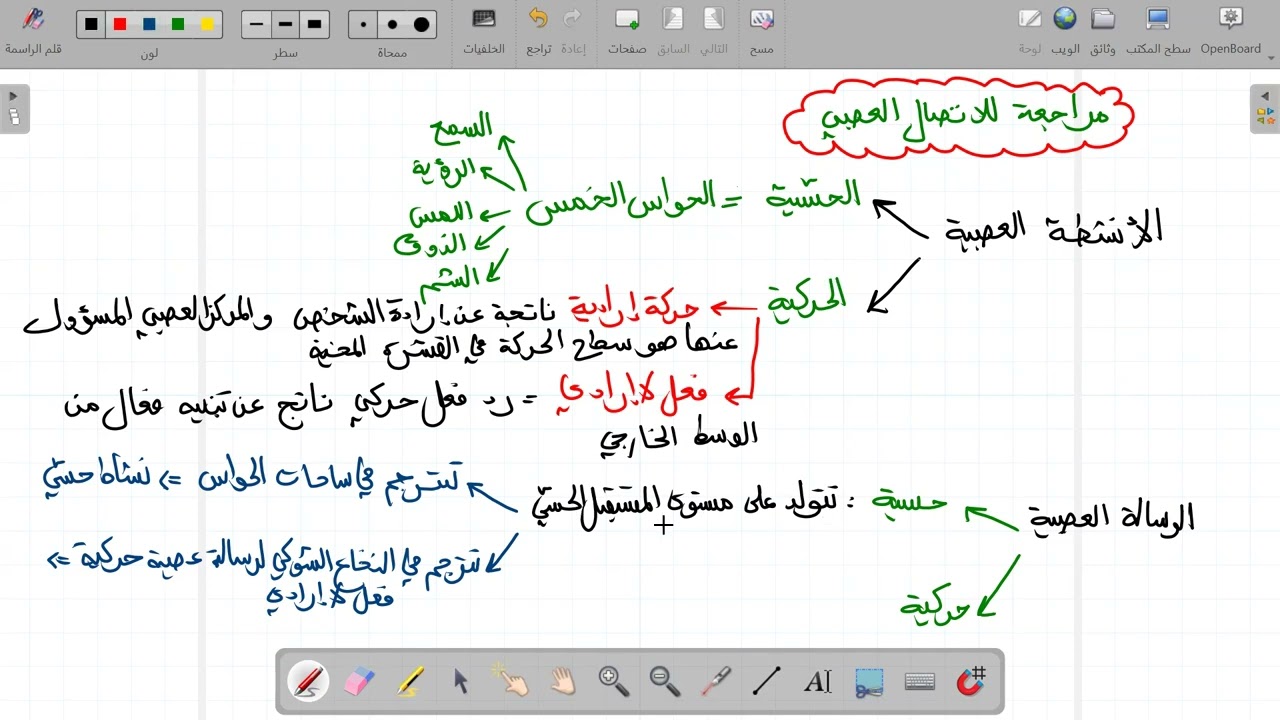 قلم الراسمة
لون
سطر
ممحاة
الخلفيات
تراجع
إعادة
صفحات
السابق
التالي
مسح
لوحة
الويب
وثائق
سطح المكتب
OpenBoard
مراجعة للاتصال العصبي
الأنشطة العصبية
الحسّية = الحواس الخمس
السمع
الرؤية
اللمس
الذوق
الشم
الحركية
حركة إرادية ناتجة عن إرادة الشخص والمركز العصبي المسؤول
عنها هو سطح الحركة في القشرة المخية
فعل لا إرادي = رد فعل حركي ناتج عن تنبيه فعال من
الوسط الخارجي
الرسالة العصبية
حسية : تتولد على مستوى المستقبل الحسّي
تترجم في ساحات الحواس => نشاط حسّي
تترجم في النخاع الشوكي لرسالة عصبية حركية =>
فعل لا إرادي
حركية
AI